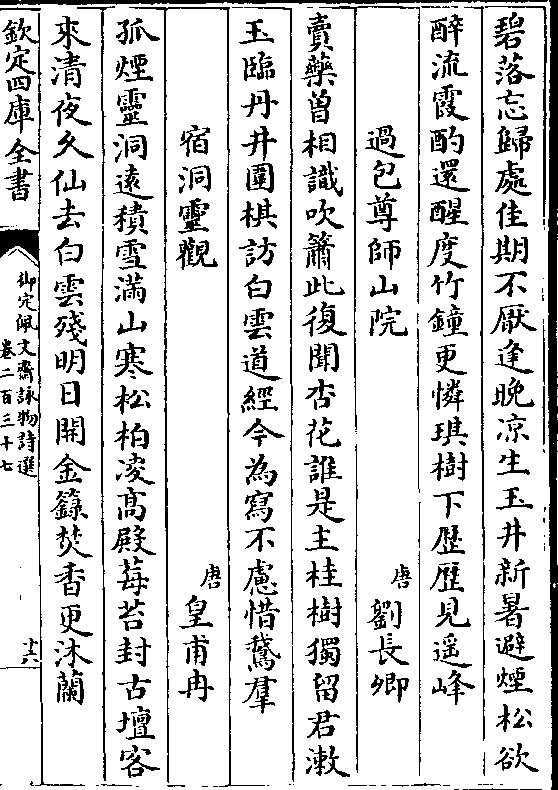 碧落忘歸處佳期不厭逢晚凉生玉井新暑避煙松欲
醉流霞酌還醒度竹鐘更憐琪樹下歷歷見遥峰
過包尊師山院
唐劉長卿
賣藥曽相識吹簫此復聞杏花誰是主桂樹獨留君漱
玉臨丹井圍棋訪白雲道經今為寫不慮惜鵞羣
宿洞靈觀
唐皇甫冉
孤煙靈洞逺積雪滿山寒松柏凌髙殿莓苔封古壇客
來清夜久仙去白雲殘明日開金籙焚香更沐蘭
欽定四庫全書
御定佩文齋詠物詩選
卷二百三十七
十六